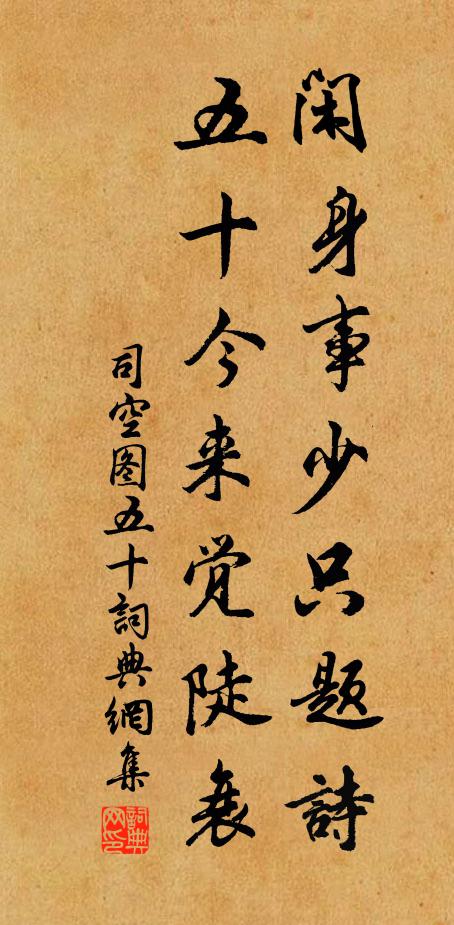 闲身事少只题詩
五十今来觉陡衰
司空图五十詞典網集
詞典网印